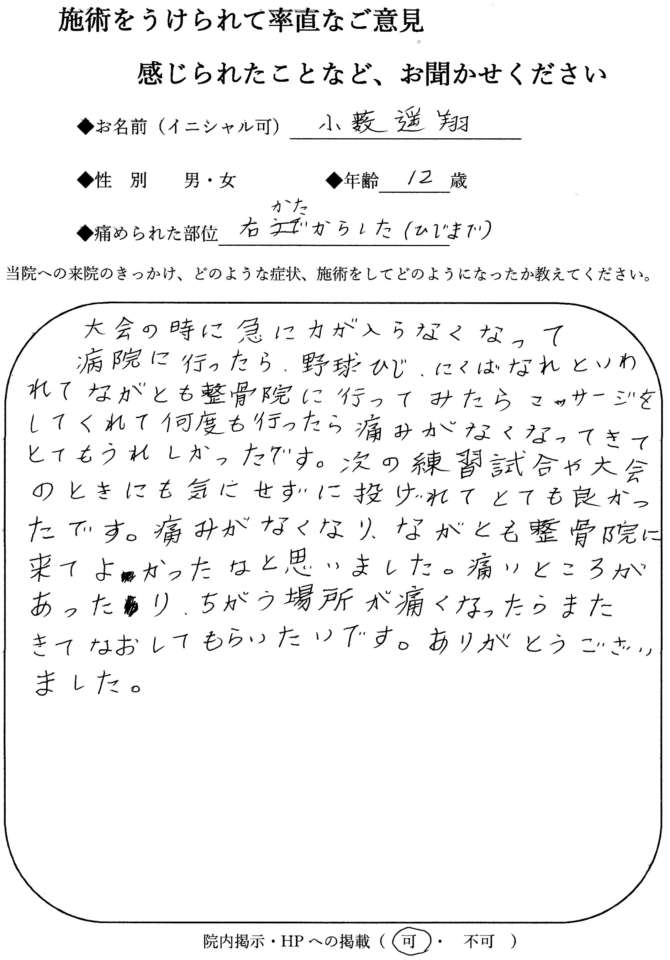 施術をうけられて率直なご意見
感じられたことなど、お聞かせください
◆お名前（イニシャル可） 小薮遥翔
◆性　別　　男・女　　◆年齢 12 歳
かた
◆痛められた部位 右からした(ひじまで)
当院への来院のきっかけ、どのような症状、施術をしてどのようになったか教えてください。
大会の時に急に力が入らなくなって
病院に行ったら、野球ひじ、にくばなれといわ
れてながとも整骨院に行ってみたらマッサージを
してくれて何度も行ったら痛みがなくなってきて
とてもうれしかったです。次の練習試合や大会
のときにも気にせずに投げれてとても良かっ
たです。痛みがなくなり、ながとも整骨院に
来てよかったなと思いました。痛いところが
あったり、ちがう場所が痛くなったらまた
きてなおしてもらいたいです。ありがとうござい
ました。
院内掲示・HPへの掲載（ 可 ・　不可　）